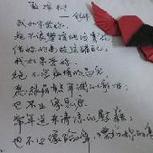 致橡树
—— 舒婷
我如果爱你——
绝不像攀援的凌霄花
借你的高枝炫耀自己
我如果爱你——
绝不学痴情的鸟儿
为绿荫重复单调的歌曲
也不止像泉源
常年送来清凉的慰藉
也不止像险峰，增加你的高